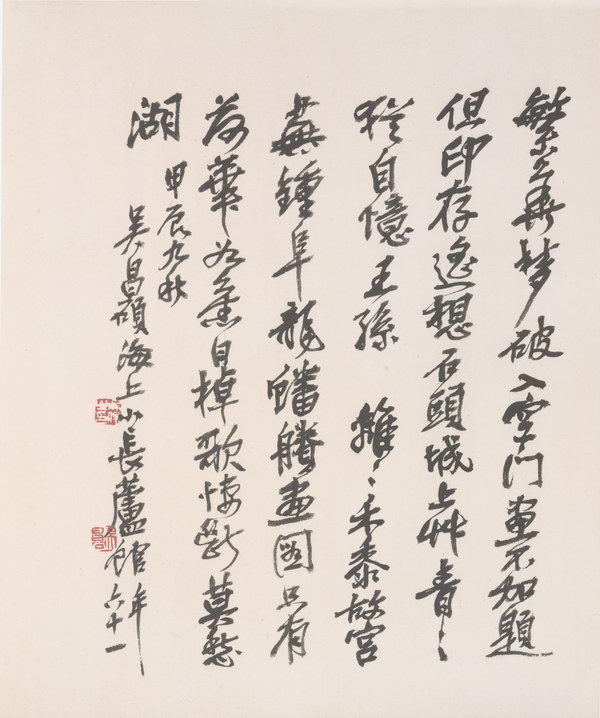 繁華夢破入空門畫不加題
但印存遙想石頭城上艸青〻
猶自憶王孫 離〻禾黍故宮
蕪鍾阜龍蟠賸畫圖只有
荷華如舊日棹歌悽斷莫愁
湖 甲辰九秋
吳昌碩海上小長蘆館年六十一